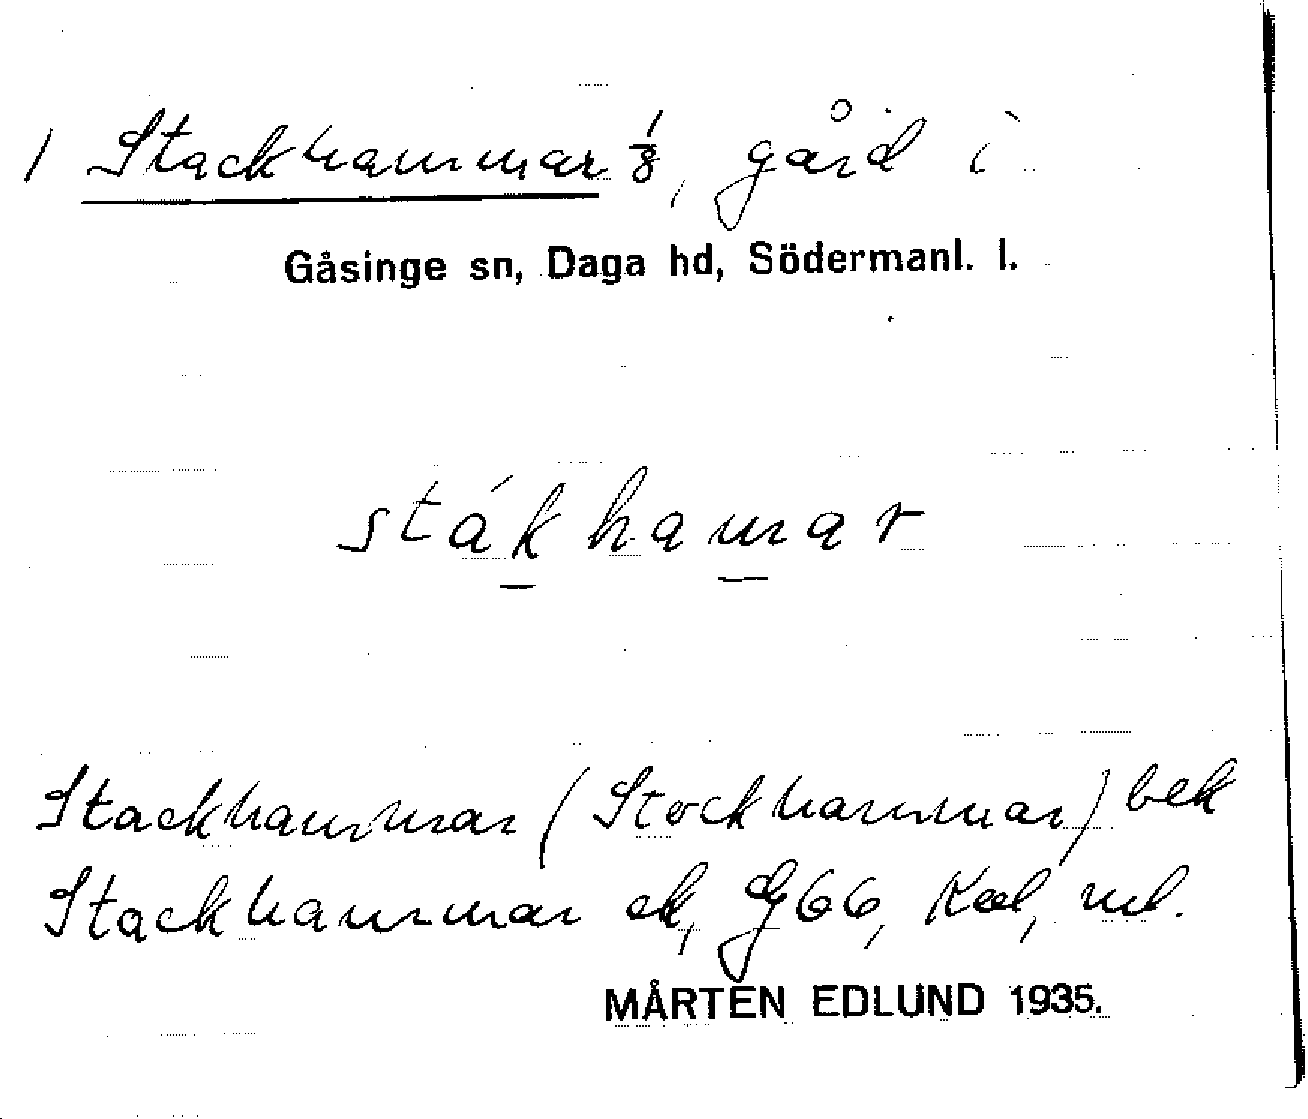 1 Stackhammar 1/8, gård i
Gåsinge sn, Daga hd, Södermanl. l.
stákhamar
Stackhammar (Stockhammar) bek
Stackhammar ek, Gg 66, Kal, ml.
MÅRTEN EDLUND 1935.